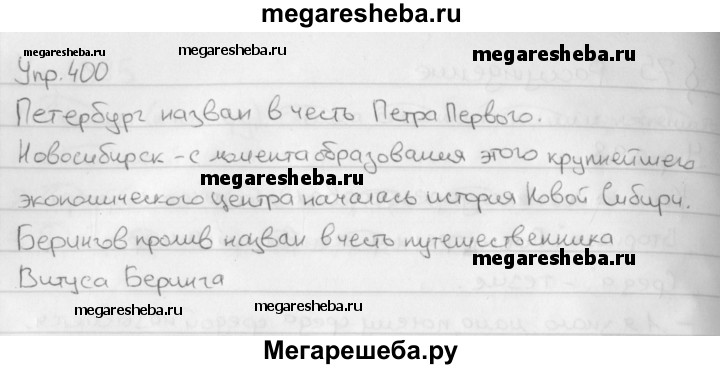 megaresheba.ru
megaresheba.ru
megaresheba.ru
megaresheba.ru
Упр. 400
megaresheba.ru
Петербург назван в честь Петра Первого.
Новосибирск - с момента образования этого крупнейшего
megaresheba.ru
экономического центра началась история Новой Сибири.
Берингов пролив назван в честь путешественника
megaresheba.ru
Витуса Беринга
megaresheba.ru
megaresheba.ru
Мегарешеба.ру